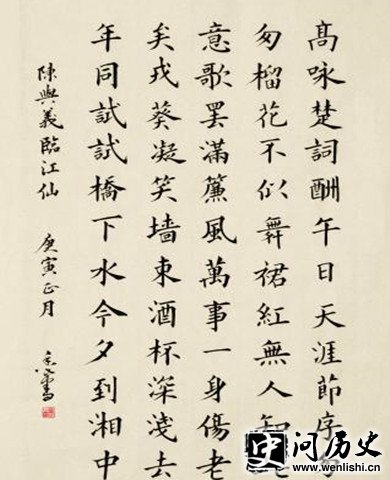 髙咏楚詞酬午日天涯節序匆
匆榴花不似舞裙紅無人知
意歌罷滿簾風萬事一身傷老
矣戎葵凝笑墙東酒杯深淺去
年同試試橋下水今夕到湘中
陳與義臨江仙 庚寅正月
问历史
www.wenlishi.cn